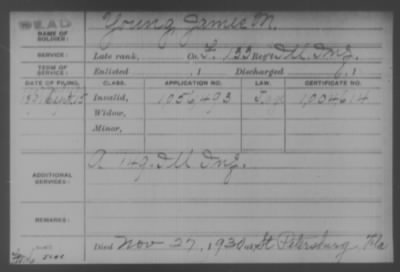 DEAD
NAME OF SOLDIER:
Young, James M.
SERVICE:
Late rank, Co. F, 133 Reg't Ill Inf.
TERM OF SERVICE:
Enlisted , 1 Discharged , 1
DATE OF FILING. CLASS. APPLICATION NO. LAW. CERTIFICATE NO.
Invalid, 1056493 1004614
Widow,
Minor,
ADDITIONAL SERVICES:
Ill Inf.
REMARKS:
Died Nov 27, 1930 at St Petersburg, Fla